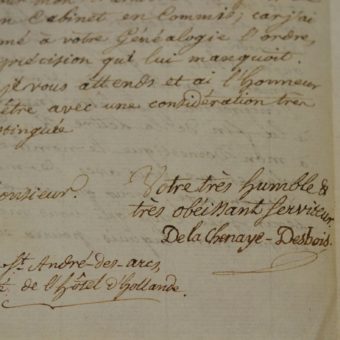 un Cabinet en Commis; car j'ai
mé à votre Généalogie l'ordre,
précision qui lui manquoit.
je vous attends et ai l'honneur
être avec une considération très
stinguée
onsieur.
Votre très humble &
très obéissant serviteur.
De la Chenaye-Desbois.
St. André-des-arcs,
t. de l'hôtel d'hollande.